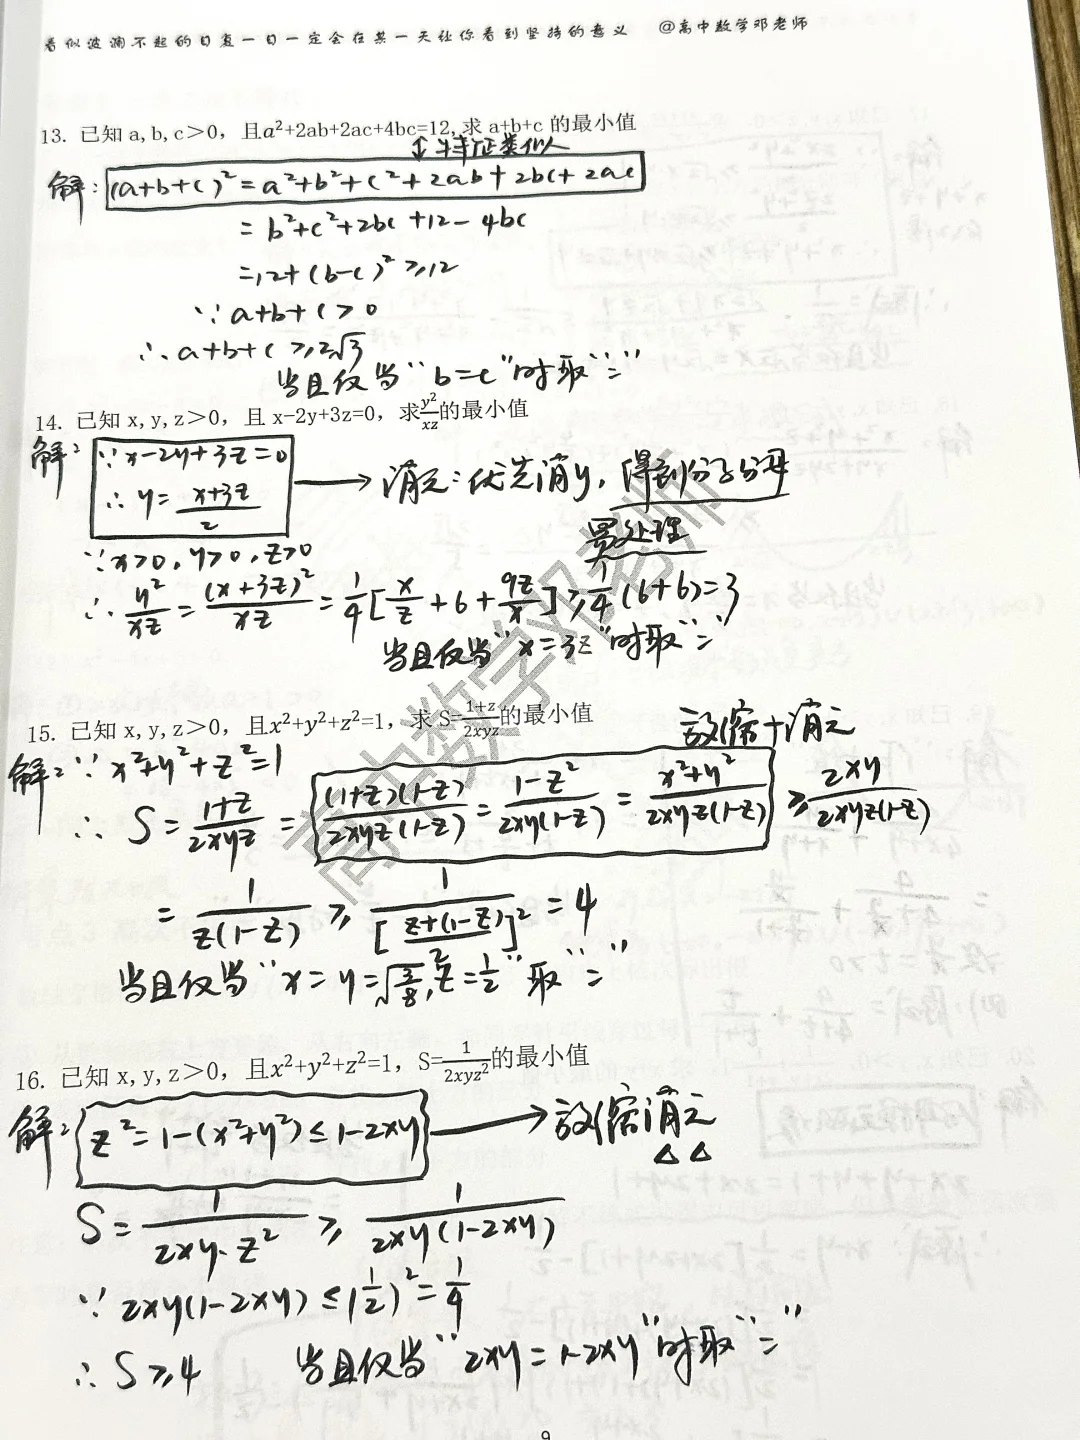 看似波澜不起的日复一日一定会在某一天让你看到坚持的意义 @高中数学邓老师
13. 已知 a,b,c＞0，且a²+2ab+2ac+4bc=12,求 a+b+c 的最小值
↕特征类似
解：(a+b+c)²=a²+b²+c²+2ab+2bc+2ac
=b²+c²+2bc+12-4bc
=12+(b-c)²≥12
∵a+b+c>0
∴a+b+c≥2√3
当且仅当“b=c”时取“=”
14. 已知 x,y,z＞0，且 x-2y+3z=0，求y²/xz的最小值
解：∵x-2y+3z=0
∴y=(x+3z)/2
→消元：优先消y，得到分子分母
幂处理
∵x>0,y>0,z>0
∴y²/xz=(x+3z)²/xz=1/4[x/z+6+9z/x]≥1/4(6+6)=3
当且仅当“x=3z”时取“=”
15. 已知 x,y,z＞0，且x²+y²+z²=1，求 S=(1+z)/2xyz的最小值
放缩+消元
解：∵x²+y²+z²=1
∴S=(1+z)/2xyz=(1+z)(1-z)/2xyz(1-z)=(1-z²)/2xy(1-z)=(x²+y²)/2xyz(1-z)≥2xy/2xyz(1-z)
=1/z(1-z)≥1/[(z+(1-z))/2]²=4
当且仅当“x=y=√(3/8),z=1/2”取“=”
16. 已知 x,y,z＞0，且x²+y²+z²=1，S=1/2xyz²的最小值
解：z²=1-(x²+y²)≤1-2xy→放缩消元
△△
S=1/2xy·z²≥1/2xy(1-2xy)
∵2xy(1-2xy)≤(1/2)²=1/4
∴S≥4 当且仅当“2xy=1-2xy”时取“=”
9
高中数学邓老师